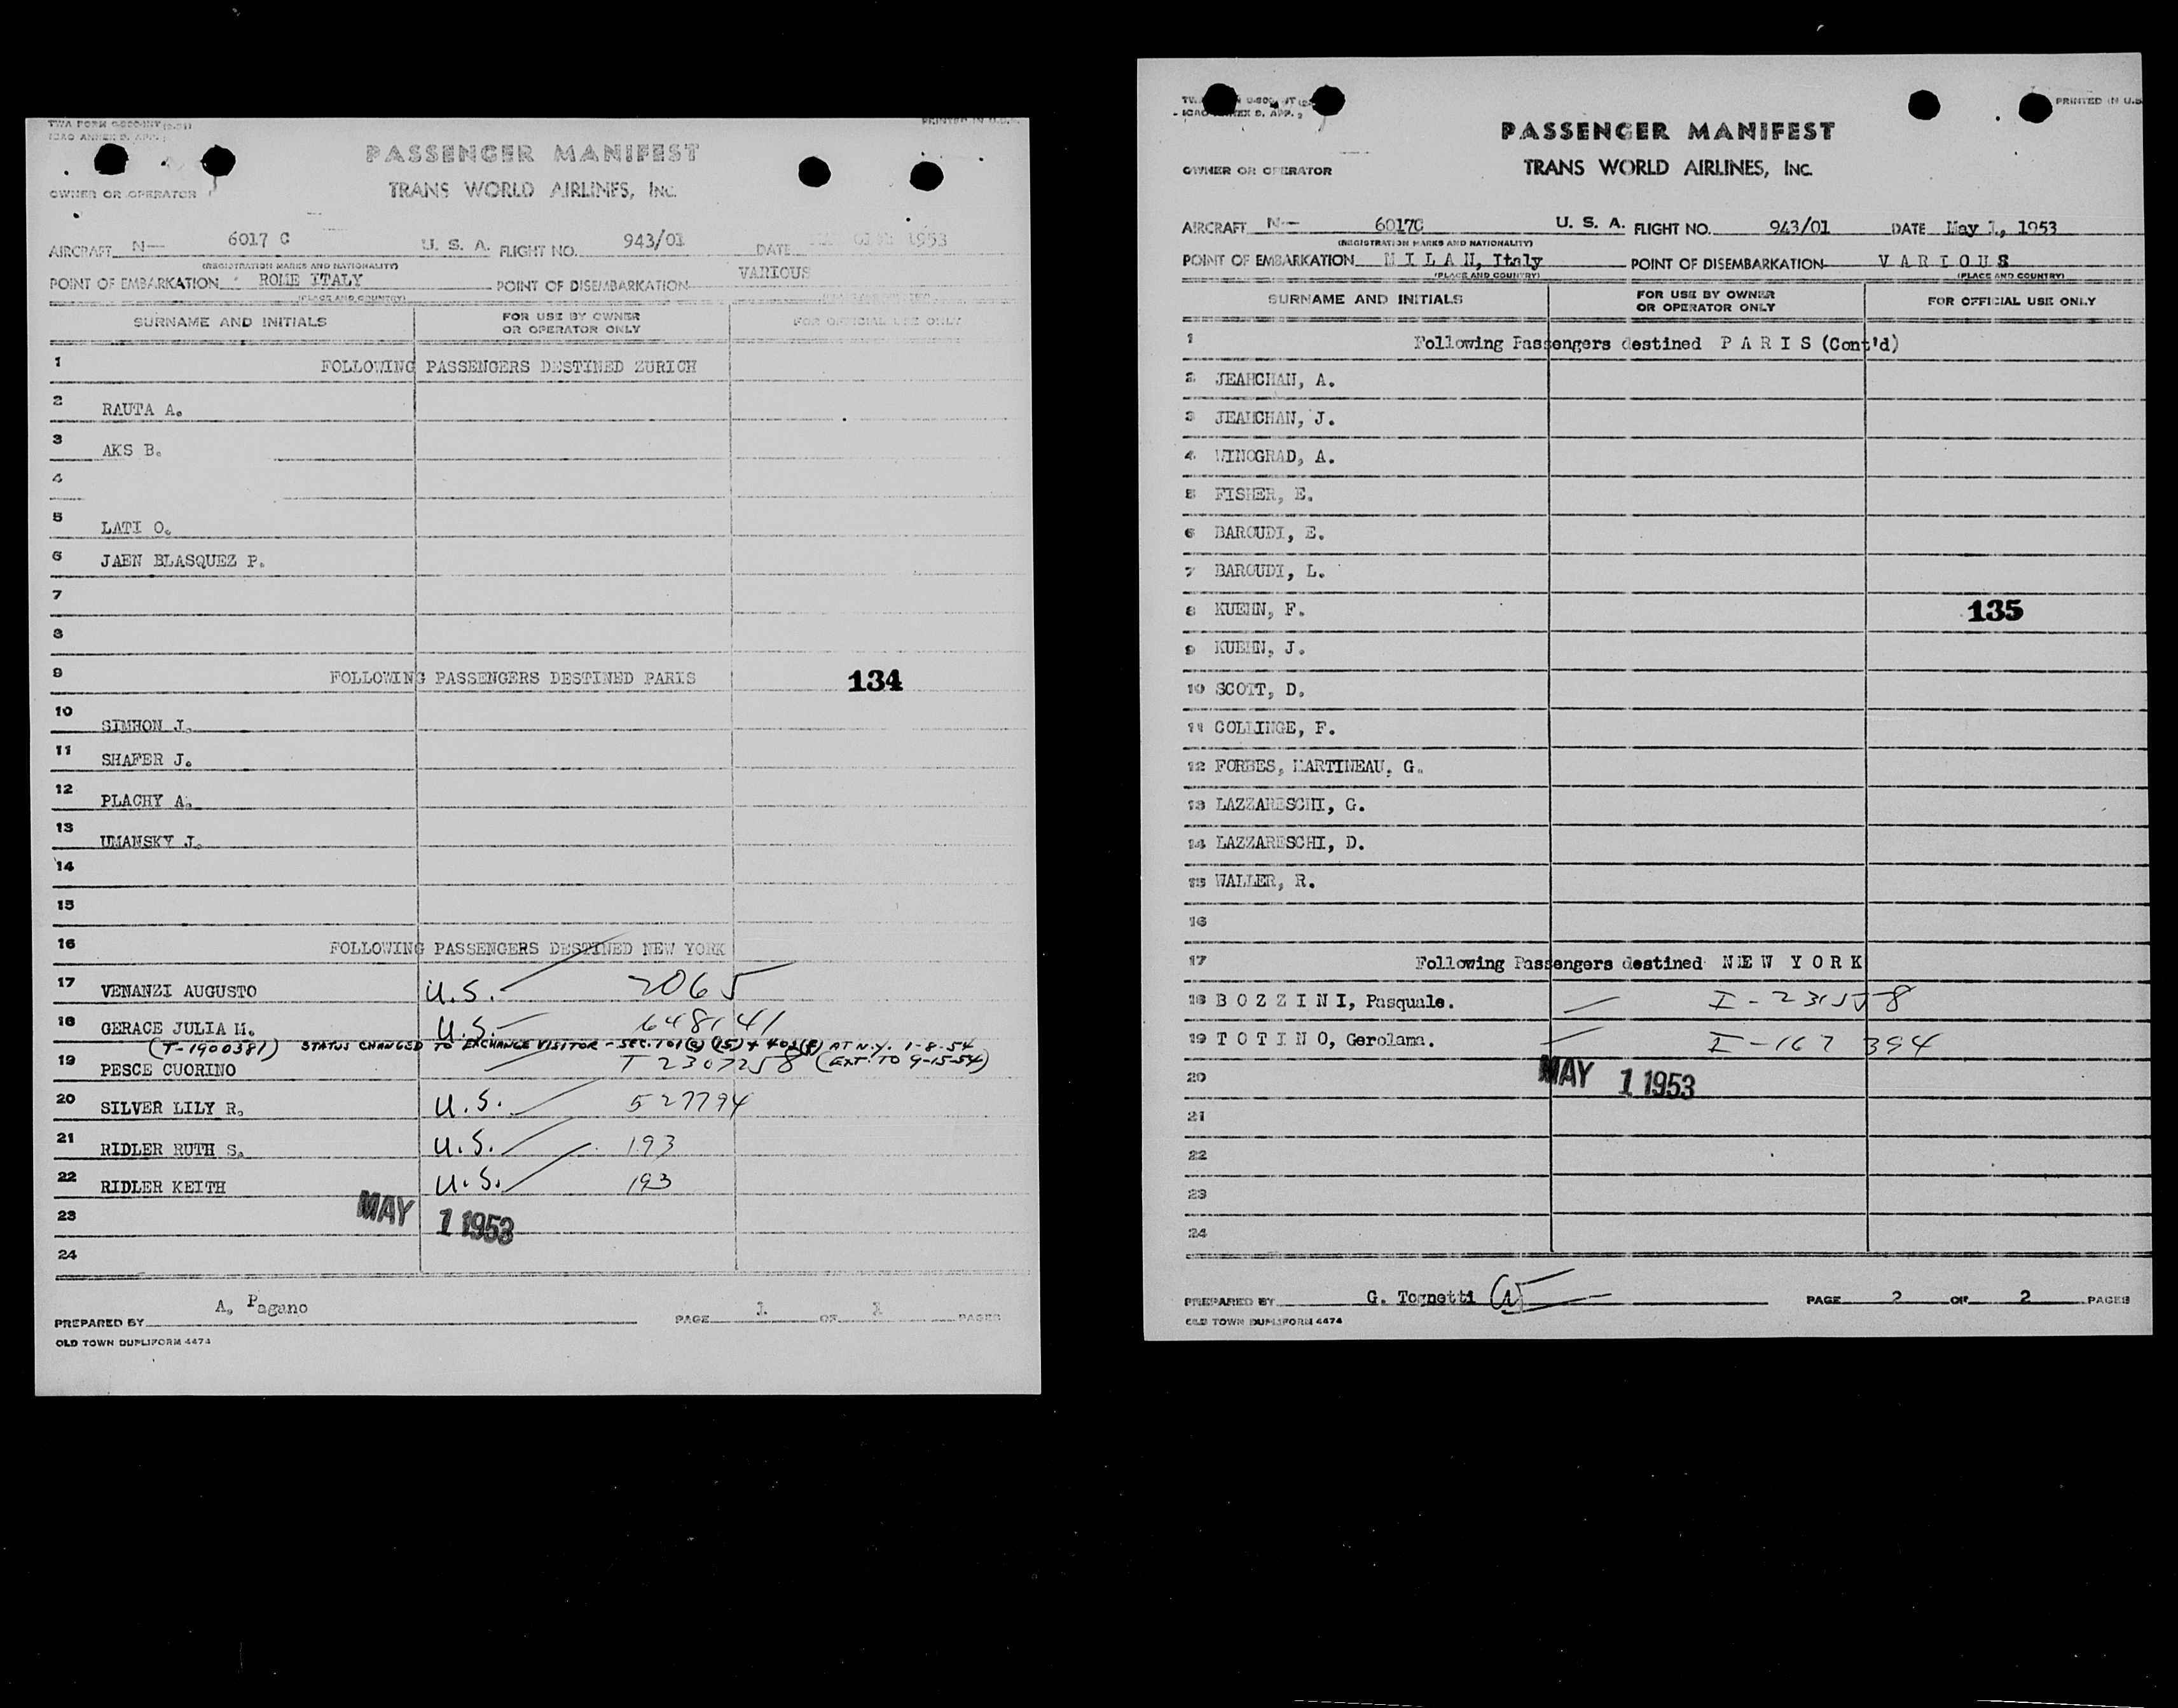 PRINTED IN U.S.
PASSENGER MANIFEST
TRANS WORLD AIRLINES, INC.
OWNER OR OPERATOR
AIRCRAFT N— 6017 C U. S. A. FLIGHT NO. 943/01 DATE 1953
(REGISTRATION MARKS AND NATIONALITY)
POINT OF EMBARKATION ROME ITALY POINT OF DISEMBARKATION VARIOUS
(PLACE AND COUNTRY)
SURNAME AND INITIALS FOR USE BY OWNER OR OPERATOR ONLY FOR OFFICIAL USE ONLY
1 FOLLOWING PASSENGERS DESTINED ZURICH
2 RAUTA A.
3 AKS B.
4
5 LATI O.
6 JAEN BLASQUEZ P.
7
8
9 FOLLOWING PASSENGERS DESTINED PARIS 134
10 SIMHON J.
11 SHAFER J.
12 PLACHY A.
13 UMANSKY J.
14
15
16 FOLLOWING PASSENGERS DESTINED NEW YORK
17 VENANZI AUGUSTO U.S. 2065
18 GERACE JULIA M. U.S. 648141
(T-1900381) STATUS CHANGED TO EXCHANGE VISITOR - SEC. 101(a)(15) + 402(f) AT N.Y. 1-8-54
19 PESCE CUORINO T 2307258 (EXT. TO 9-15-54)
20 SILVER LILY R. U.S. 527794
21 RIDLER RUTH S. U.S. 193
22 RIDLER KEITH U.S. 193
23 MAY 1 1953
24
PREPARED BY A. Pagano PAGE 1 OF 1 PAGES
OLD TOWN DUPLIFORM 4474
PRINTED IN U.S
PASSENGER MANIFEST
TRANS WORLD AIRLINES, INC.
OWNER OR OPERATOR
AIRCRAFT N— 6017C U. S. A. FLIGHT NO. 943/01 DATE May 1, 1953
(REGISTRATION MARKS AND NATIONALITY)
POINT OF EMBARKATION M I L A N, Italy POINT OF DISEMBARKATION V A R I O U S
(PLACE AND COUNTRY) (PLACE AND COUNTRY)
SURNAME AND INITIALS FOR USE BY OWNER OR OPERATOR ONLY FOR OFFICIAL USE ONLY
1 Following Passengers destined P A R I S (Cont'd)
2 JEANCHAN, A.
3 JEANCHAN, J.
4 WINOGRAD, A.
5 FISHER, E.
6 BAROUDI, E.
7 BAROUDI, L.
8 KUEHN, F. 135
9 KUEHN, J.
10 SCOTT, D.
11 COLLINGE, F.
12 FORBES, MARTINEAU, G.
13 LAZZARESCHI, G.
14 LAZZARESCHI, D.
15 WALLER, R.
16
17 Following Passengers destined N E W Y O R K
18 B O Z Z I N I, Pasquale. I-231558
19 T O T I N O, Gerolama. I-167394
20 MAY 1 1953
21
22
23
24
PREPARED BY G. Tognetti PAGE 2 OF 2 PAGES
OLD TOWN DUPLIFORM 4474